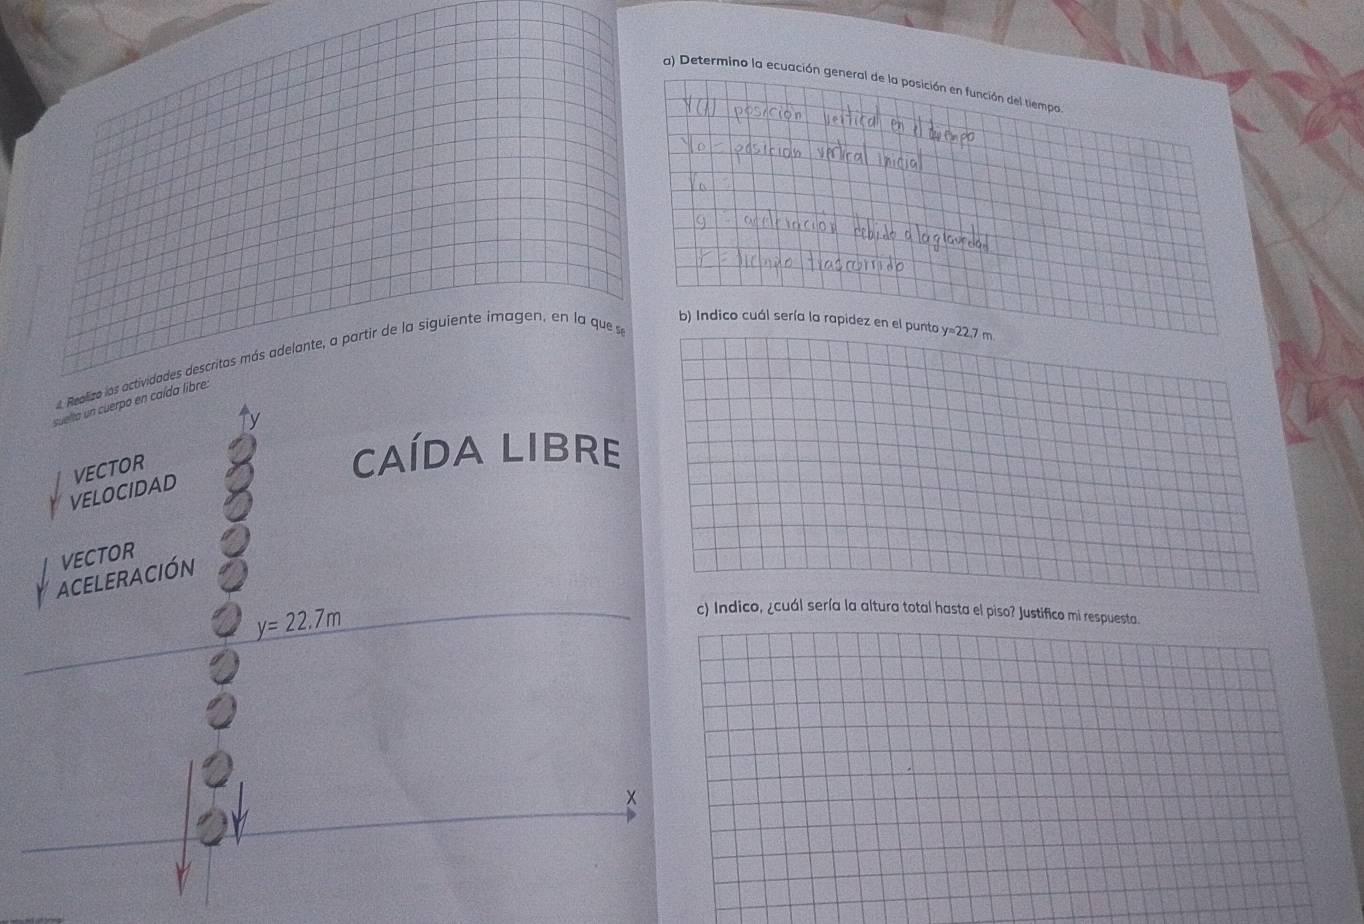 4. Realizo las actividades descritas más adelante, a partir de la siguiente imagen, en la que se
suelta un cuerpo en caída libre:
y
CAÍDA LIBRE
VECTOR
VELOCIDAD
VECTOR
ACELERACIÓN
y= 22.7m
X
a) Determino la ecuación general de la posición en función del tiempo.
Y(t) posición vertical en el tiempo
Yo = posición vertical inicial
Vo
g = aceleración debido a la gravedad
t = tiempo trascorrido
b) Indico cuál sería la rapidez en el punto y=22,7 m.
c) Indico, ¿cuál sería la altura total hasta el piso? Justifico mi respuesta.